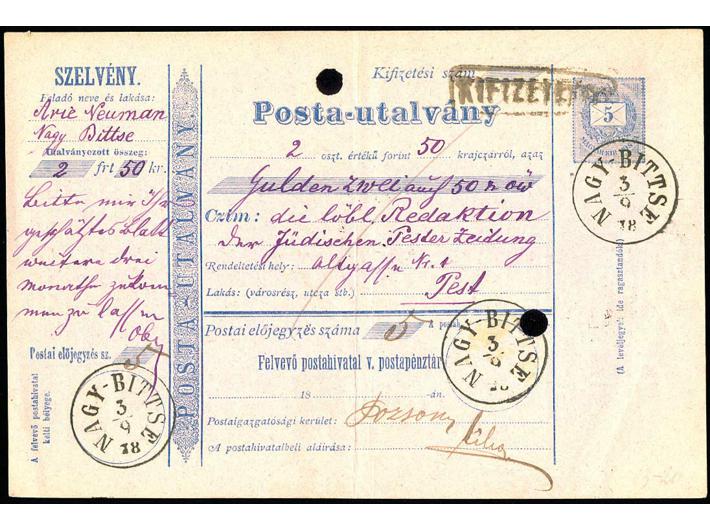 SZELVÉNY.
Feladó neve és lakása:
Arie Neuman
Nagy Bittse
Utalványozott összeg:
2 frt 50 kr.
Bitte mir Ihr
geschätztes Blatt
weitere drei
Monathe zukom
men zu lassen
Obg
Postai előjegyzés sz. 5
A felvevő postahivatal
kelti bélyege.
NAGY-BITTSE
3/9
78
POSTA-UTALVÁNY.
Kifizetési szám
KIFIZETE
Posta-utalvány
2 oszt. értékű forint 50 krajczárról, azaz
Gulden zwei auf 50 n öw
Czim: die löbl Redaktion
der Jüdischen Pester Zeidung
Rendeltetési hely: altgasse Nr. 1
Lakás: (városrész, utcza stb.) Pest
Postai előjegyzés száma 5 A postah
Felvevő postahivatal v. postapénztár
18 -án.
Postaigazgatósági kerület: Pozsony
A postahivatalbeli aláírása:
NAGY-BITTSE
3/9
78
5
NAGY-BITTSE
3/9
78
(A levéljegyet ide ragasztandó.)